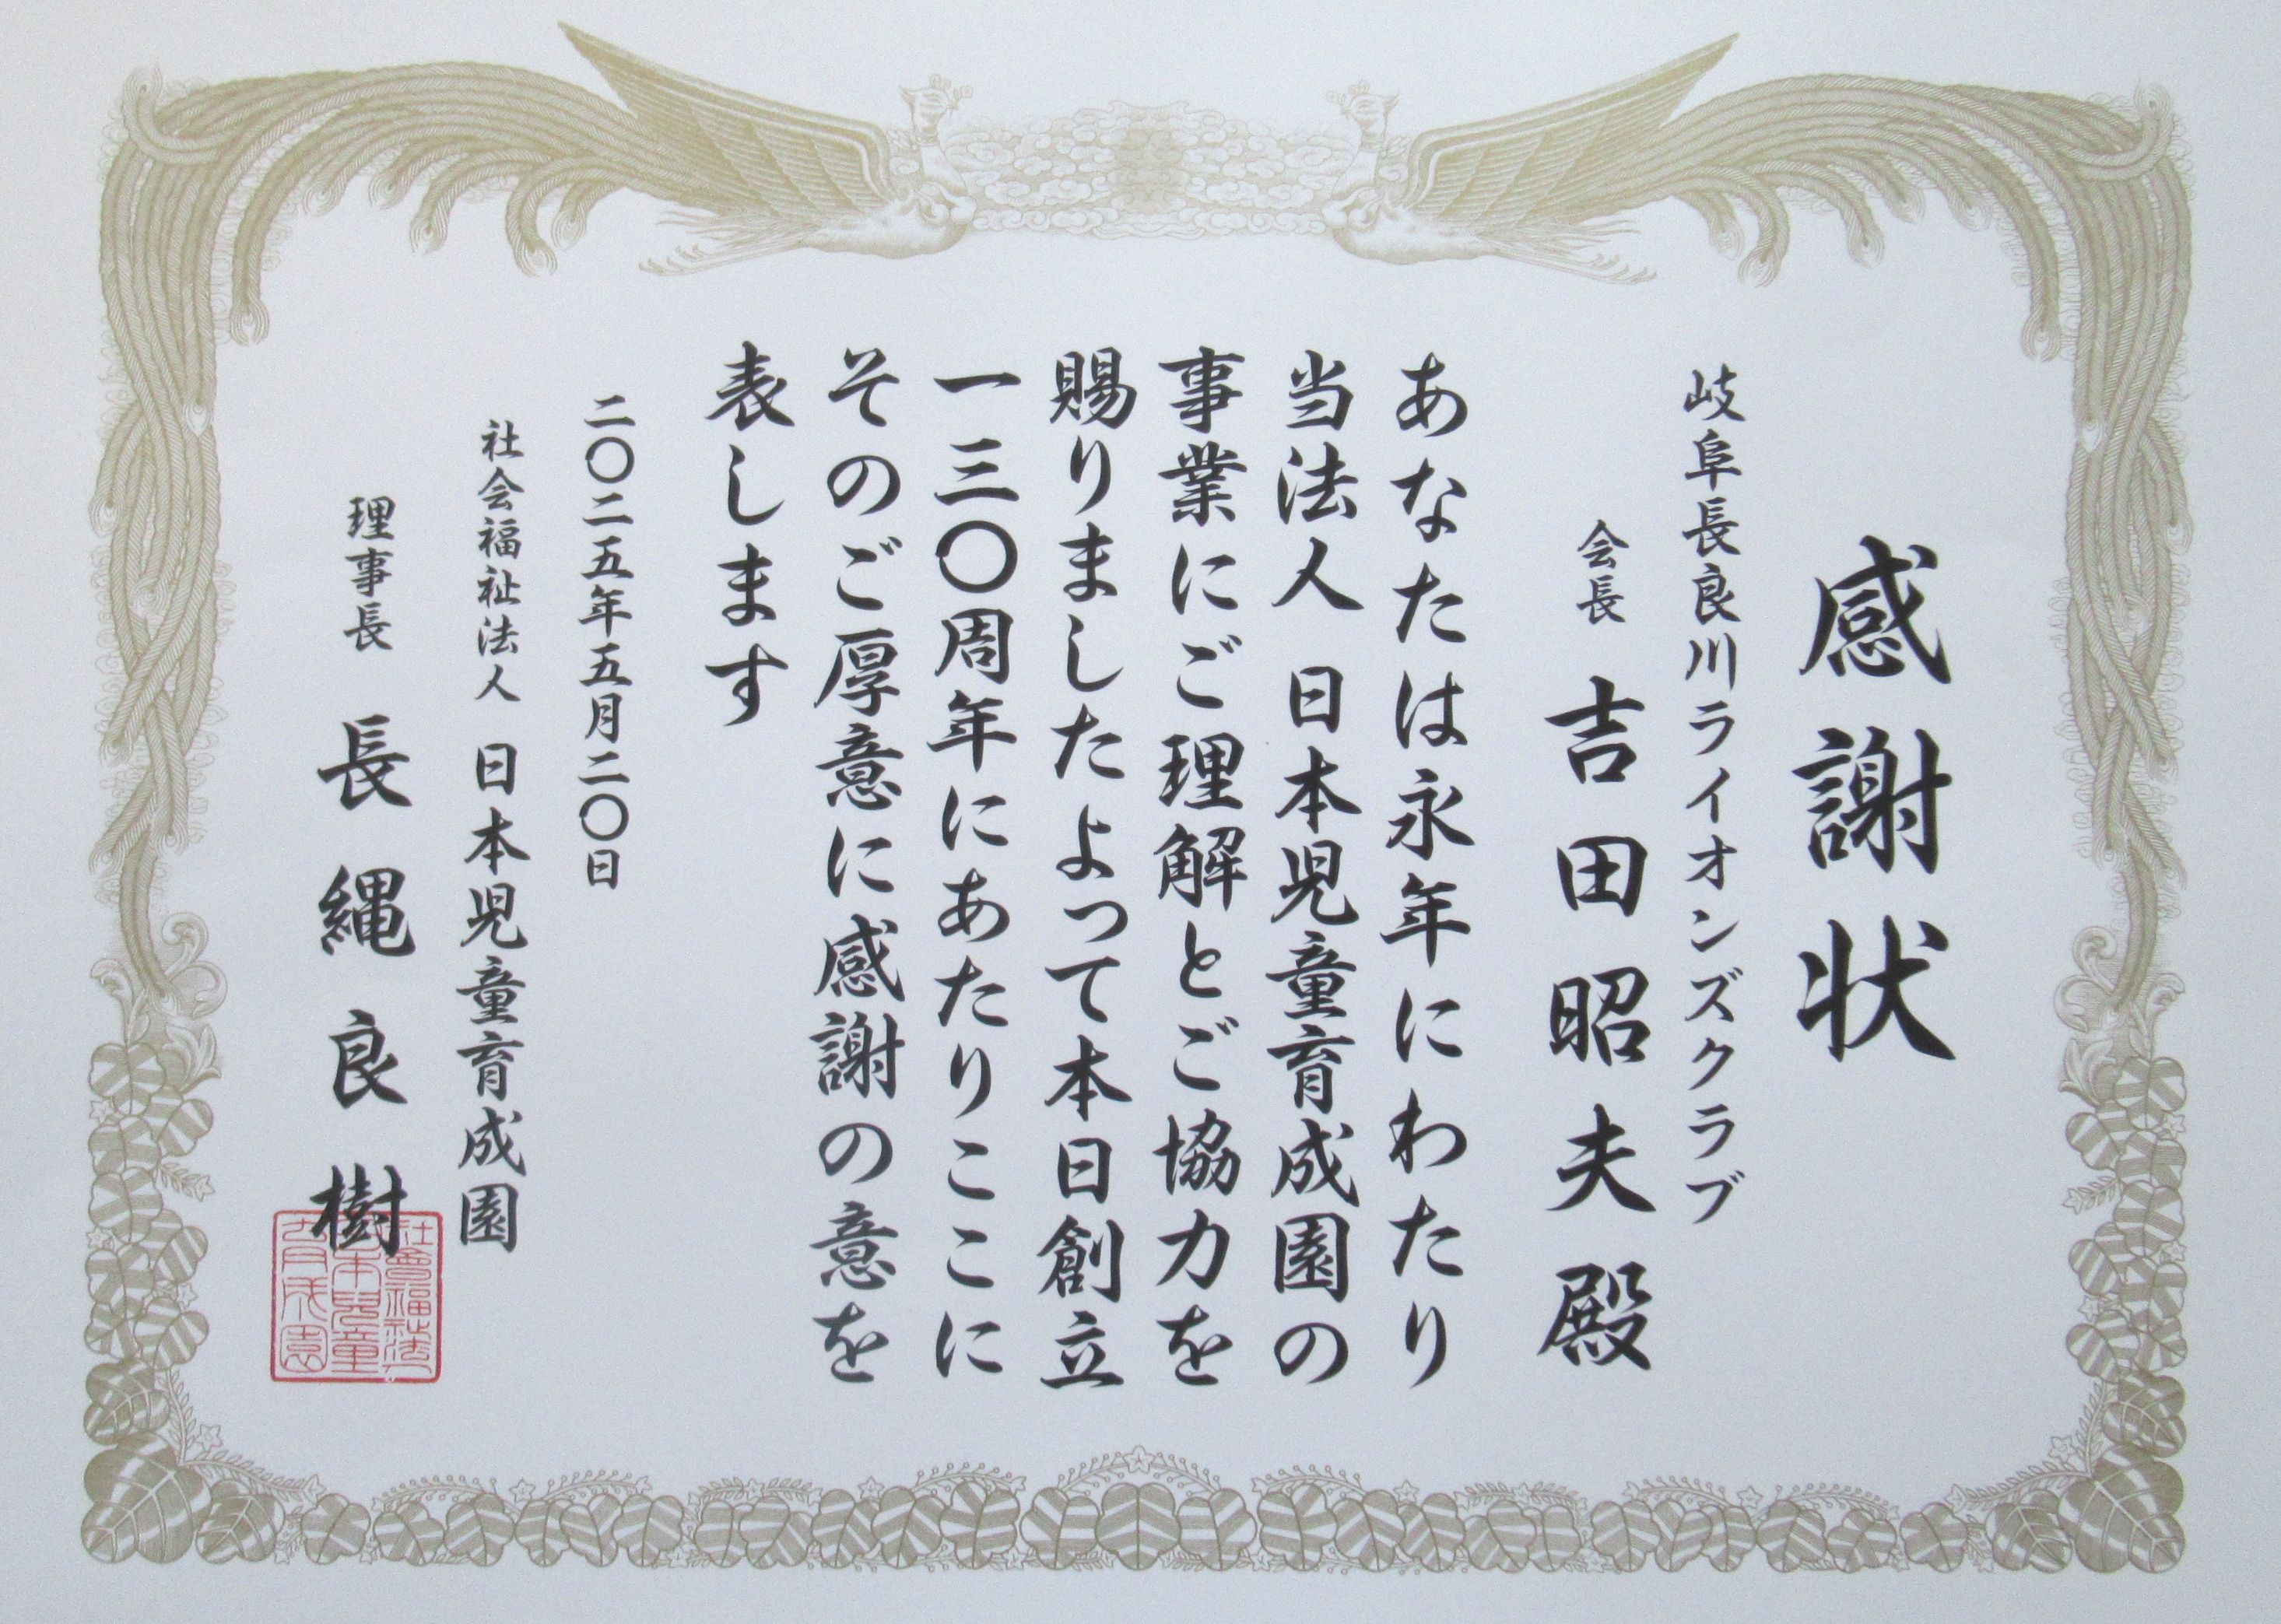 感謝状
岐阜長良川ライオンズクラブ
会長 吉田昭夫殿
あなたは永年にわたり
当法人 日本児童育成園の
事業にご理解とご協力を
賜りましたよって本日創立
一三〇周年にあたりここに
そのご厚意に感謝の意を
表します
二〇二五年五月二〇日
社会福祉法人 日本児童育成園
理事長 長縄良樹